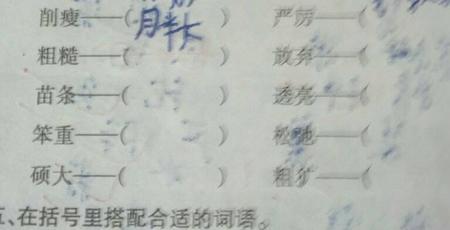 削瘦——(胖 ) 严厉——(
粗糙——( ) 放弃——(
苗条——( ) 透亮——(
笨重——( ) 松弛——(
硕大——( ) 粗犷——(
五、在括号里搭配合适的词语。